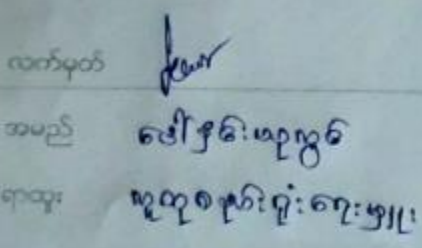 လက်မှတ်
အမည် ဒေါ်နှင်းယုလွင်
ရာထူး လူထုစည်းရုံးရေးမှူး